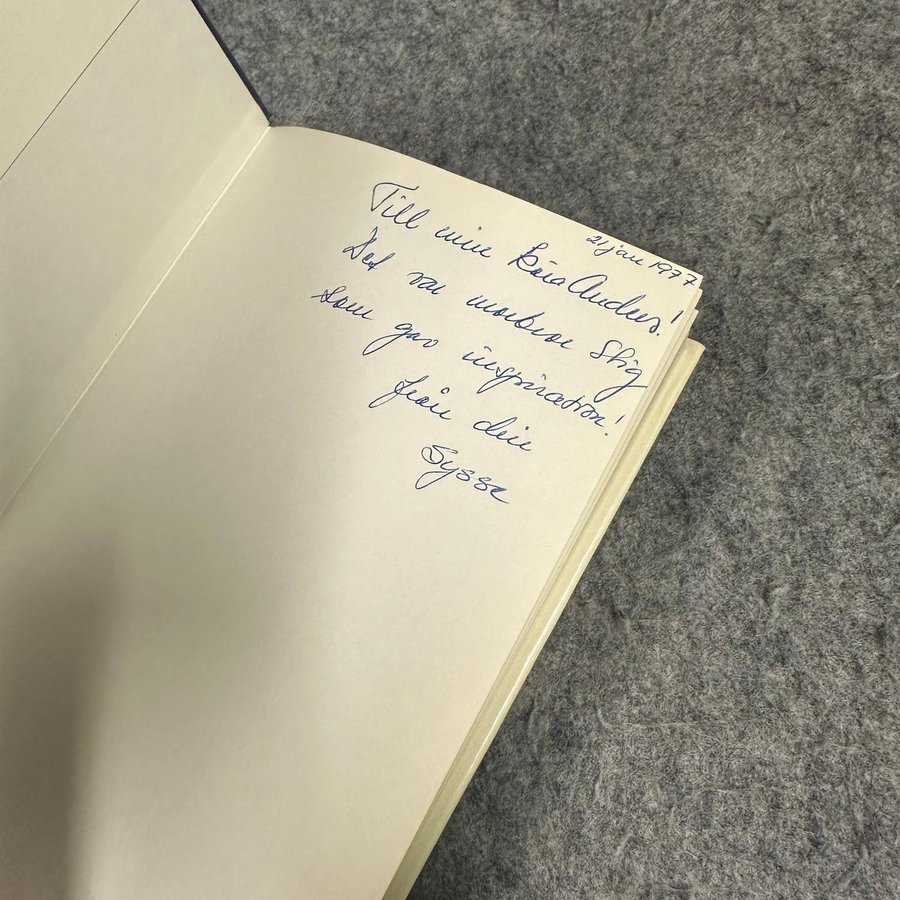 21 jan 1977
Till min kära Anders!
Det var morbror Stig
som gav inspiration!
från din
Sysse